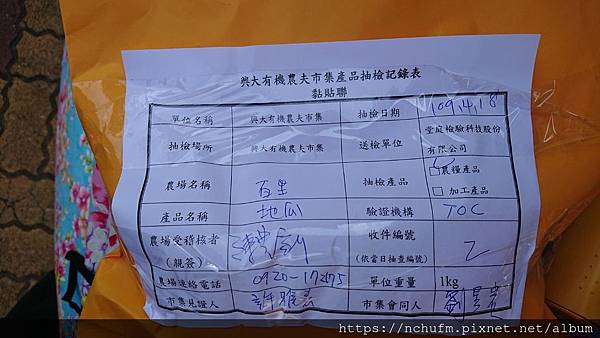 興大有機農夫市集產品抽檢記錄表
黏貼聯
單位名稱 興大有機農夫市集 抽檢日期 109.4.18
抽檢場所 興大有機農夫市集 送檢單位 全庭檢驗科技股份
有限公司
農場名稱 百里 抽檢產品 ☑農糧產品
□ 加工產品
產品名稱 地瓜 驗證機構 TOC
農場受稽核者
(親簽)
收件編號
(依當日抽查編號) 2
農場連絡電話 0920-17275 單位重量 1kg
市集見證人 市集會同人
https://nchufm.pixnet.net/album